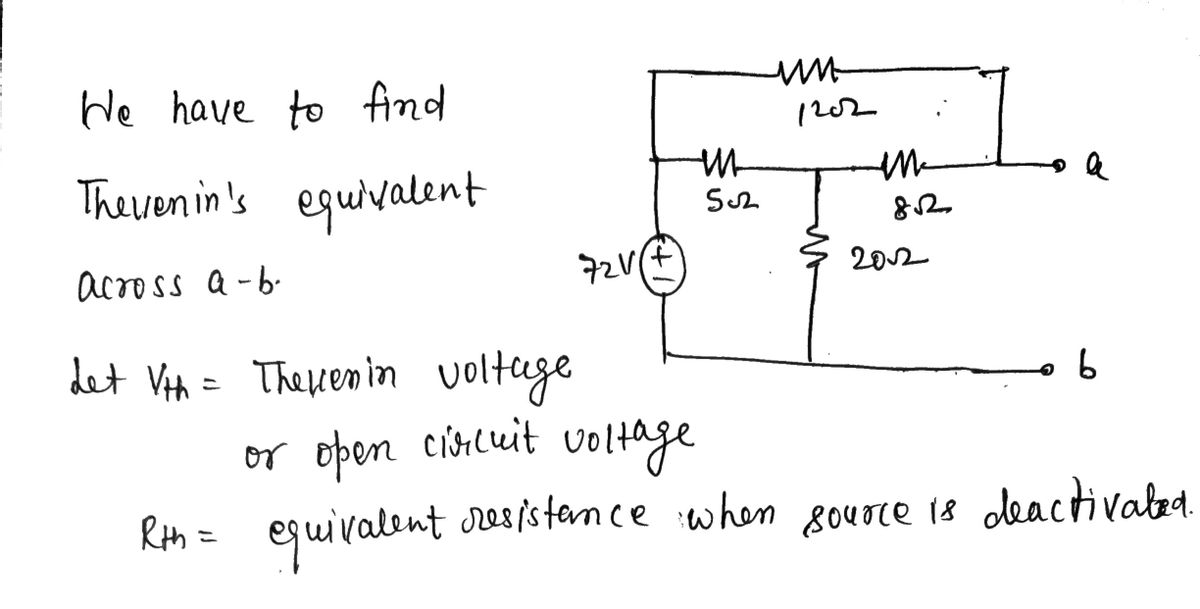 We have to find
Thevenin's equivalent
across a-b.
12Ω
a
5Ω
8Ω
72V
+
20Ω
b
Let Vth = Thevenin voltage
or open circuit voltage
Rth = equivalent resistance when source is deactivated.